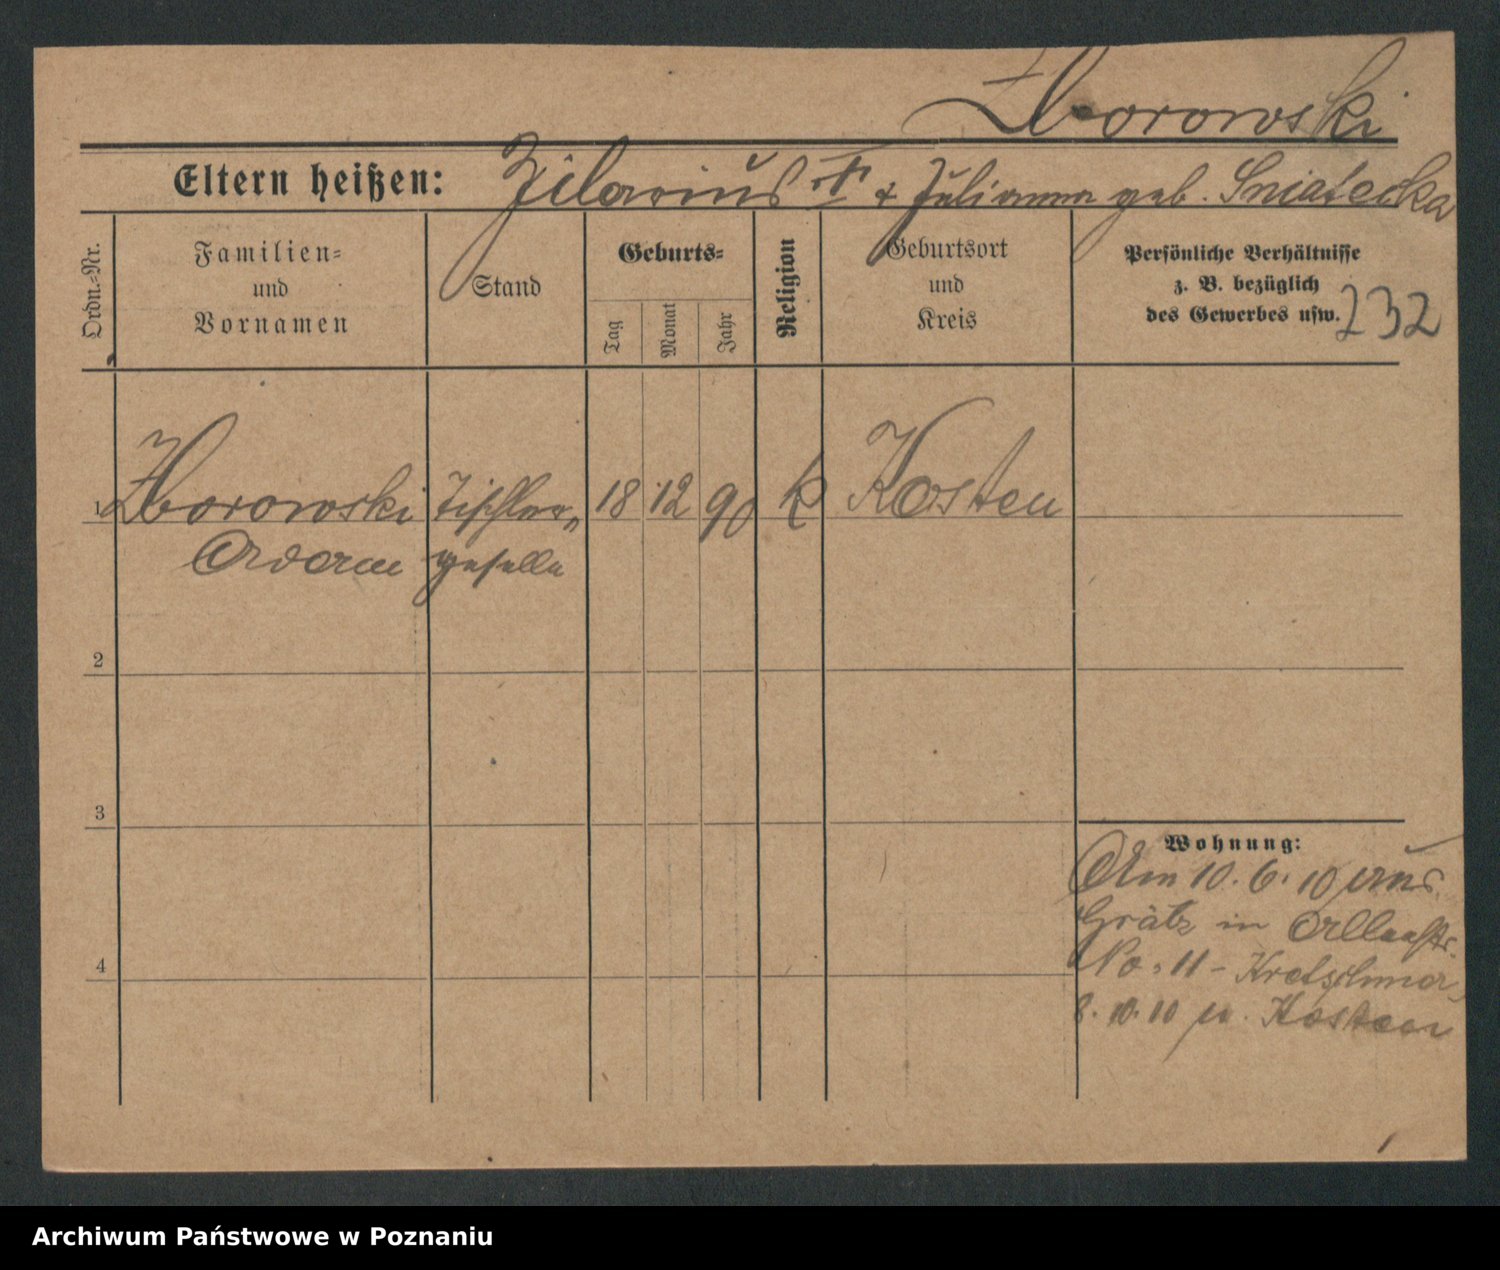 Zborowski
Eltern heißen: Hilarius † & Julianna geb. Sniatecka
Ordn.-Nr.
Familien-
und
Vornamen
Stand
Geburts-
Tag
Monat
Jahr
Religion
Geburtsort
und
Kreis
Persönliche Verhältnisse
z. B. bezüglich
des Gewerbes usw.
232
1 Zborowski Tischler- 18 12 90 k Kosten
Adam geselle
2
3
4
Wohnung:
Am 10. 6. 10 aus
Grätz in Alleestr.
No. 11 - Kretschmer
8. 10. 10 n. Kosten
Archiwum Państwowe w Poznaniu